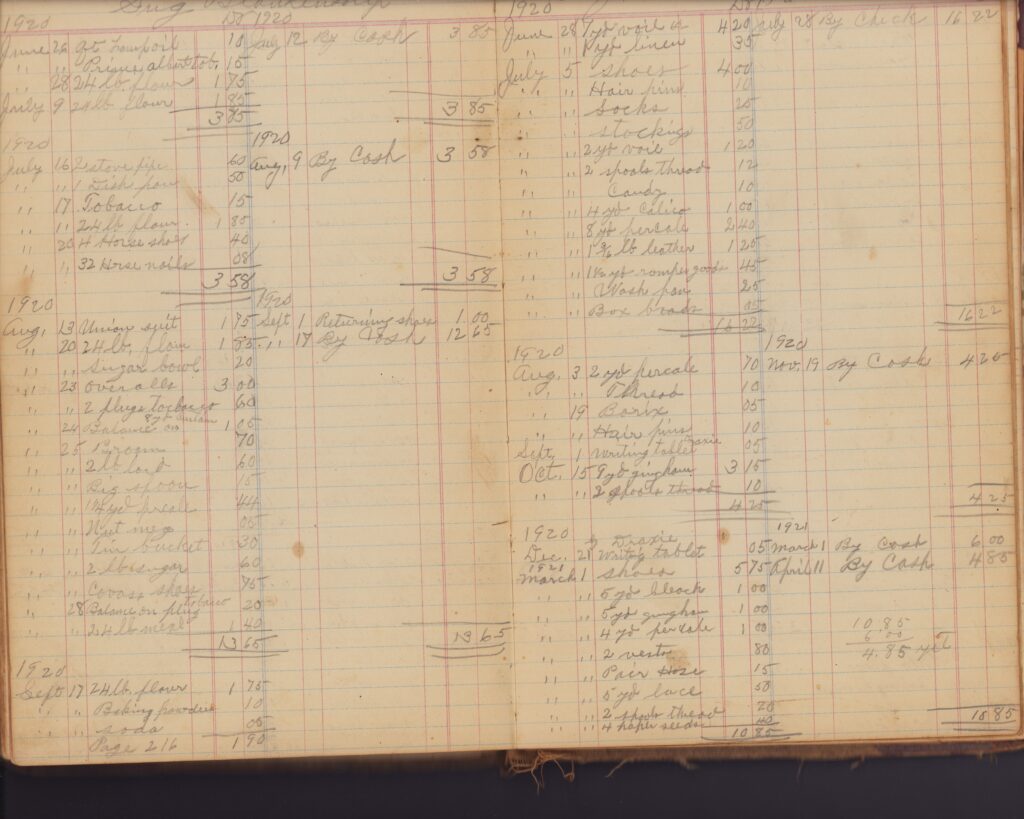 Guy Blankenship
1920 Dr 1920
June 26 qt Lampoil 10 July 12 By Cash 3 85
" " Prince albert tob. 15
" 28 24 lb. flour 1 75
July 9 24 lb flour 1 85
3 85 3 85
1920 1920
July 16 2 stove pipe 60 Aug, 9 By Cash 3 58
" " 1 Dish pan 50
" 17 Tobacco 15
" " 24 lb flour. 1 85
" 20 4 Horse shoes 40
" " 32 Horse nails 08
3 58 3 58
1920 1920
Aug, 13 Union suit 1 75 Sept 1 Returning shoes 1.00
" 20 24 lb. flour 1 85 " 17 By Cash 12 65
" " Sugar bowl 20
" 23 Overalls 3 00
" " 2 plugs tobacco 60
" 24 Balance on 1 05
" 25 Broom 70
" " 2 lb lard 60
" " Big spoon 15
" " yd 44
" " Nut meg 05
" " Tin bucket 30
" " 2 lb sugar 60
" " shoes 75
" 28 Balance on plug tobacco 20
" " 24 lb meal 1 40
13 65 13 65
1920
Sept 17 24 lb. flour 1 75
" " Baking powders 10
" " soda 05
Page 216 1 90
1920
June 28 7 yd voil 4 20 July 28 By Check 16 22
" " yd linen 35
July 5 shoes 4 00
" " Hair pins 10
" " Socks 25
" " stockings 50
" " 2 yd voil 1 20
" " 2 spools thread 12
" Candy 10
" " 4 yd Calico 1 00
" " 8 yd percale 2 40
" " lb leather 1 25
" " 1½ yd romper goods 45
" " Wash pan 25
" " Box brads 05
16 22 16 22
1920 1920
Aug, 3 2 yd percale 70 Nov. 19 By Cash 4 25
" " Thread 10
" 19 Borix 05
" " Hair pins 10
Sept, 1 Writing tablet Draxie 05
Oct. 15 9 yd gingham 3 15
" " 2 spools thread 10
4 25 4 25
1920 Draxie 1921
Dec. 21 Writ'g tablet 05 March 1 By Cash 6 00
1921
March 1 shoes 5 75 April 11 By Cash 4 85
" " 5 yd bleach 1 00
" " 5 yd gingham 1 00
" " 4 yd percale 1 00
" " 2 vests 80
" " Pair Hose 15
" " 5 yd lace 50
" " 2 spools thread 20
" " 4 paper seeds 40
10 85
10 85
10.85
6.00
4.85 yet